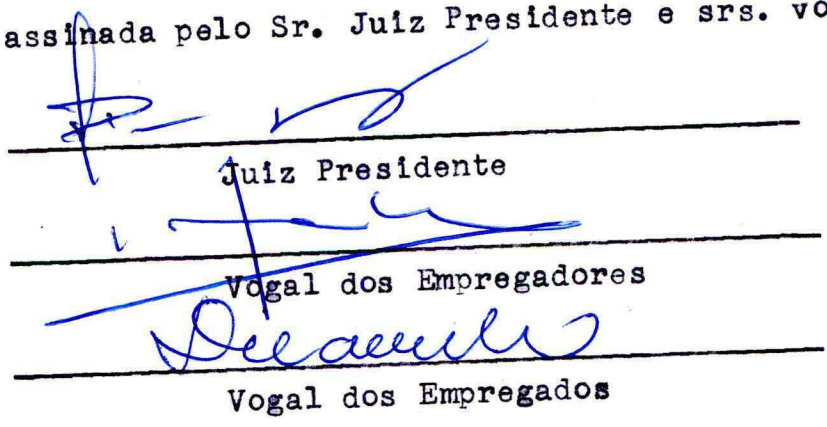 assinada pelo Sr. Juiz Presidente e srs. vo
Juiz Presidente
Vogal dos Empregadores
Vogal dos Empregados